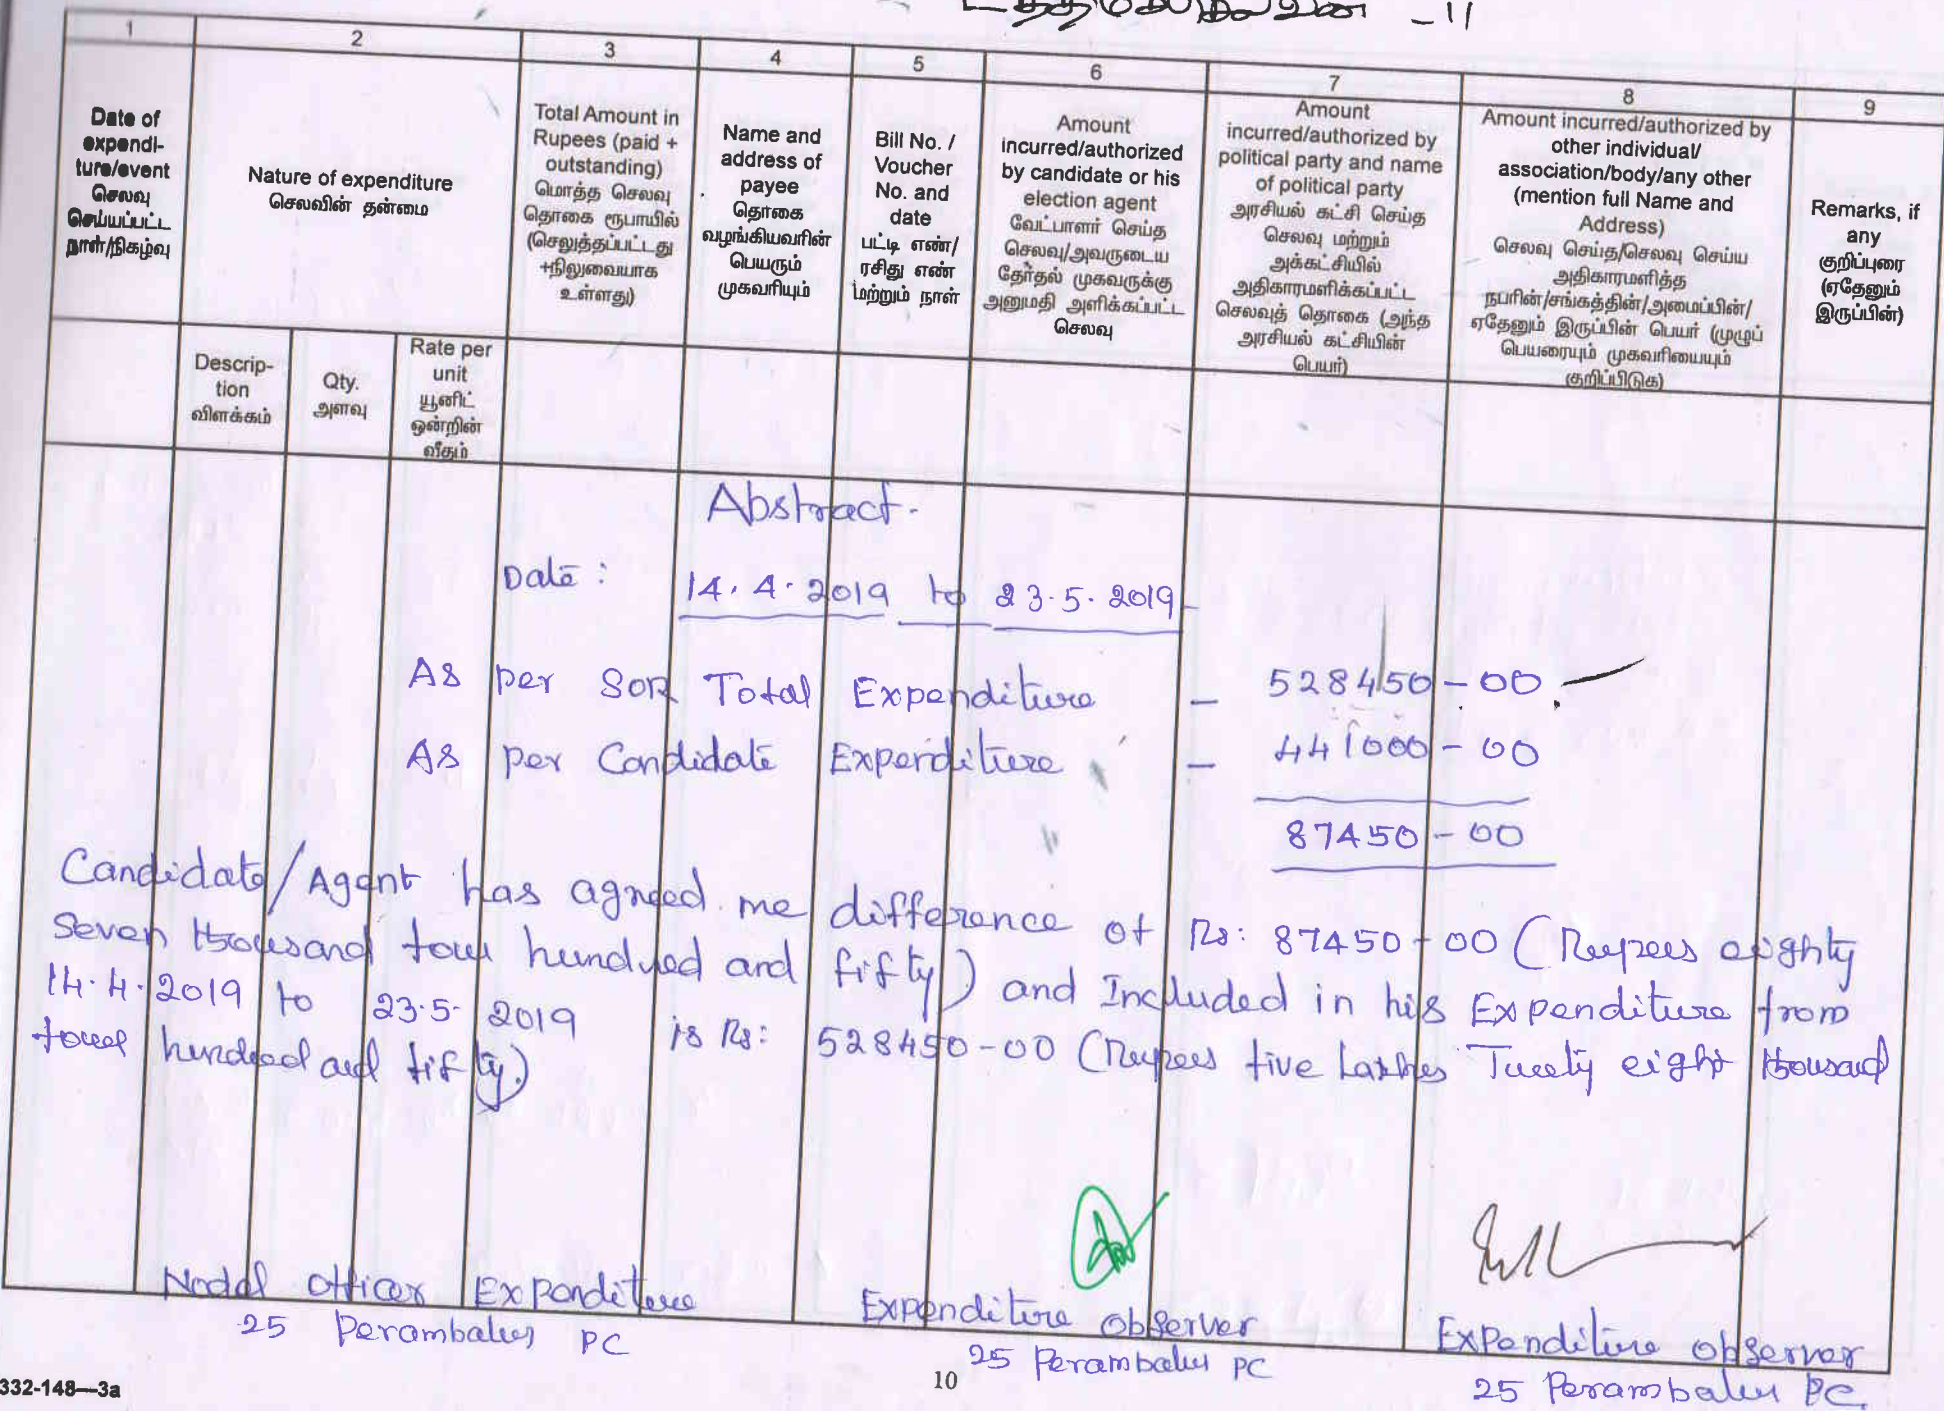 - 11
1 2 3 4 5 6 7 8 9
Date of
expendi-
ture/event
செலவு
செய்யப்பட்ட
நாள்/நிகழ்வு
Nature of expenditure
செலவின் தன்மை
Total Amount in
Rupees (paid +
outstanding)
மொத்த செலவு
தொகை ரூபாயில்
(செலுத்தப்பட்டது
+நிலுவையாக
உள்ளது)
Name and
address of
payee
தொகை
வழங்கியவரின்
பெயரும்
முகவரியும்
Bill No. /
Voucher
No. and
date
பட்டி எண்/
ரசிது எண்
மற்றும் நாள்
Amount
incurred/authorized
by candidate or his
election agent
வேட்பாளர் செய்த
செலவு/அவருடைய
தேர்தல் முகவருக்கு
அனுமதி அளிக்கப்பட்ட
செலவு
Amount
incurred/authorized by
political party and name
of political party
அரசியல் கட்சி செய்த
செலவு மற்றும்
அக்கட்சியில்
அதிகாரமளிக்கப்பட்ட
செலவுத் தொகை (அந்த
அரசியல் கட்சியின்
பெயர்)
Amount incurred/authorized by
other individual/
association/body/any other
(mention full Name and
Address)
செலவு செய்த/செலவு செய்ய
அதிகாரமளித்த
நபரின்/சங்கத்தின்/அமைப்பின்/
ஏதேனும் இருப்பின் பெயர் (முழுப்
பெயரையும் முகவரியையும்
குறிப்பிடுக)
Remarks, if
any
குறிப்புரை
(ஏதேனும்
இருப்பின்)
Descrip-
tion
விளக்கம்
Qty.
அளவு
Rate per
unit
யூனிட்
ஒன்றின்
வீதம்
Abstract.
Date : 14.4.2019 to 23.5.2019
As per SOR Total Expenditure - 528450-00
As per Candidate Expenditure - 441000-00
87450-00
Candidate/Agent has agreed me difference of Rs: 87450-00 (Rupees eighty
Seven thousand four hundred and fifty) and Included in his Expenditure from
14.4.2019 to 23.5.2019 is Rs: 528450-00 (Rupees five Lakhes Twenty eight thousand
four hundred and fifty.)
Nodal Officer Expenditure
25 Perambalur PC
Expenditure Observer
25 Perambalur PC
Expenditure Observer
25 Perambalur PC.
332-148—3a
10